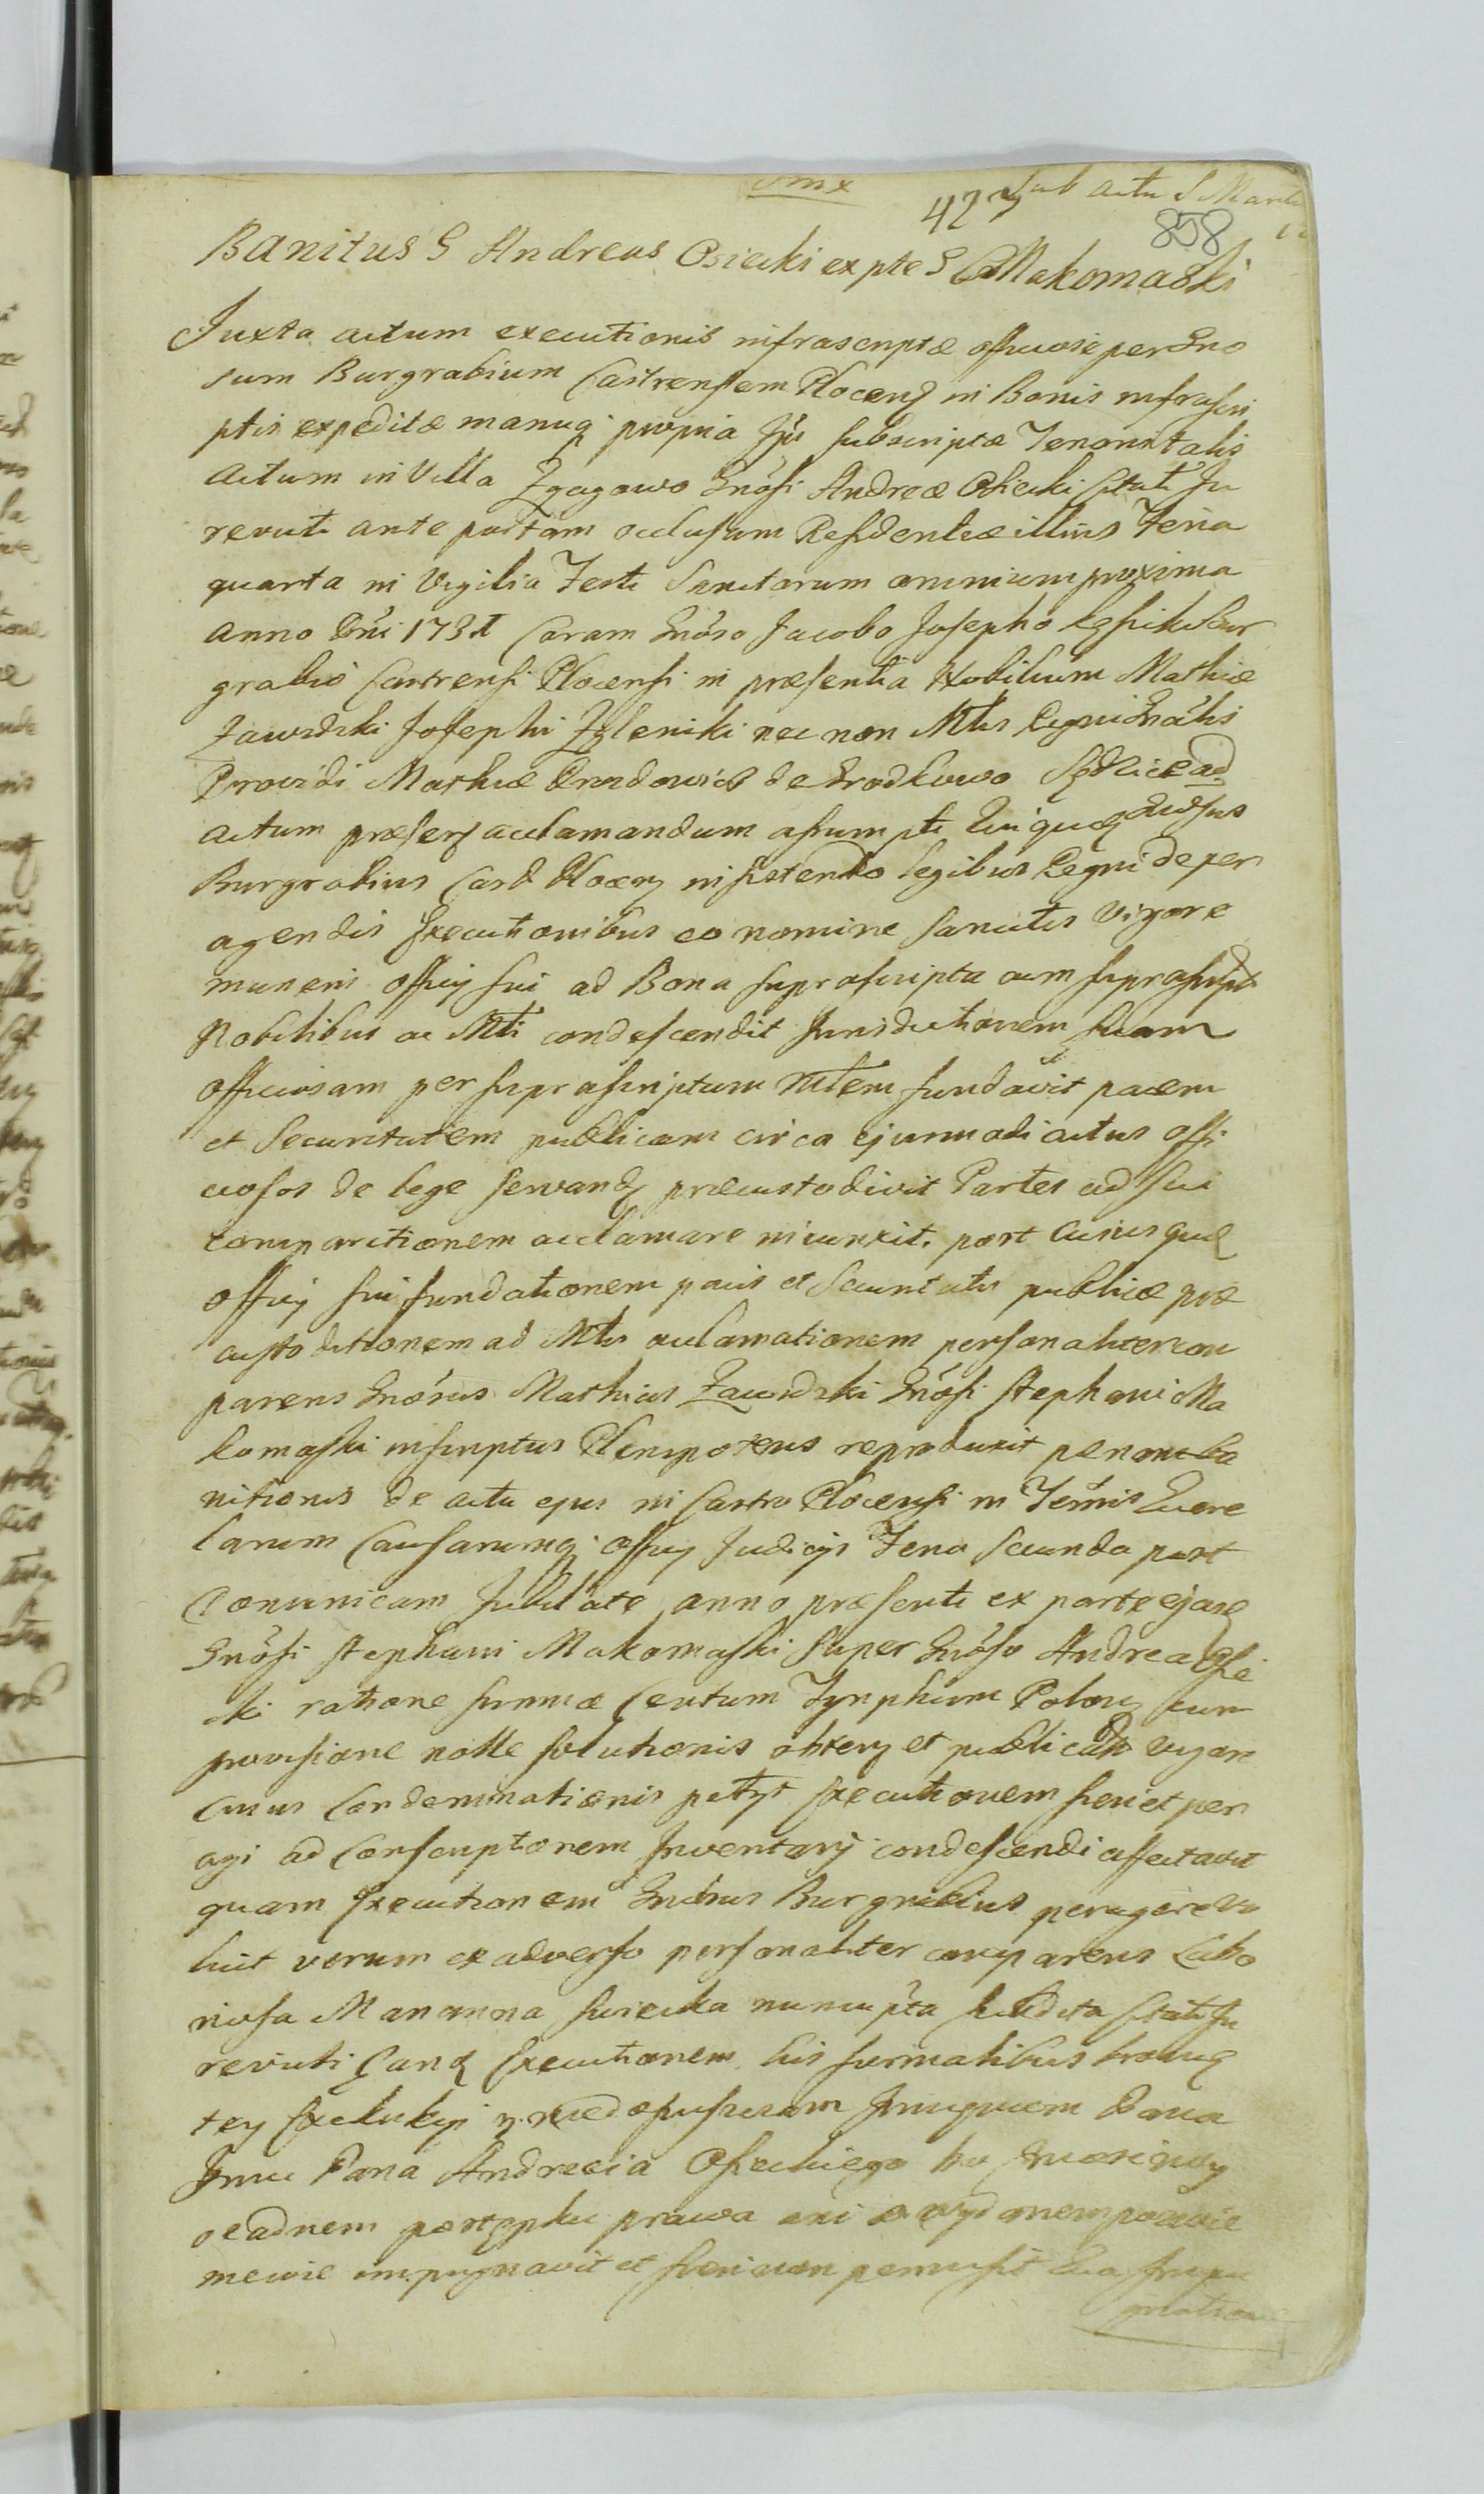 Sub actu S Marti
427
858
Banitus G Andreas Osiecki ex pte G Makomaski
Juxta actum executionis infrascriptæ officiose per Gno
sum Burgrabium Castrensem Plocens in Bonis infrascri
ptis expeditæ manuq propria subscriptæ Tenoris talis
Actum in Villa Zgagowo Gnosi Andreæ Osiecki Citati Ju
revicti ante portam occlusam Residentiæ illius Feria
quarta in Vigilia Festi Sanctorum omnium proxima
Anno Dni 1731 Coram Gnoso Jacobo Josepho Bur
grabio Castrensi Plocensi in præsentia Nobilium Mathiæ
Zawidzki Josephi Zgleniki nec non Mtlis Regni Gnalis
Providi Mathiæ de ad
actum præsens acclamandum assumpti
Burgrabius Cast Plocens insistendo legibus Regni de per
agendis Executionibus eo nomine sancitis vigore
muneris officij sui ad Bona suprascripta cum suprascript
Nobilibus ac Mtli condescendit Jurisdictionem suam
officiosam per suprascriptum Mtlem fundavit pacem
et securitatem publicam circa ejusmodi actus offi
ciosos de lege servand præcustodivit Partes ad sui
comparitionem acclamare iniunxit, post cuiusquid
officij sui fundationem pacis et securitatis publicæ præ
custoditionem ad Mtlis acclamationem personaliter com
parens Gnosus Mathias Zawidzki Gnosi Stephani Ma
komaski infscriptus Plenipotens reproduxit penam ba
nitionis de actu ejus in Castro Plocensi in Terminis Quere
larum Causarumq officij Judicijs Feria Secunda post
Dominicam Jubilate anno præsenti ex parte ejusd
Gnosi Stephani Makomaski super Gnoso Andrea Osie
cki ratione summæ Centum Tynphium Polon cum
provisione nolle solutionis obtent et publicat vigore
cuius Condemnationis petijt Executionem fieri et per
agi ad Conscriptionem Inventarij condescendi affectavit
quam Executionem Gnosus Burgrabius peragere vo
luit verum ex adverso personaliter comparens Labo
riosa Marianna nuncupta subdita Citati Ju
revicti eand Executionem his formalibus
tey Exekucyi y niedopuszczam Imieniem Pana
Jmci Pana Andrzeia Osieckiego
o żadnem postępku prawa ani o wydanem pozwie
niewie impugnavit et fieri non permisit Qua Impu
gnatione